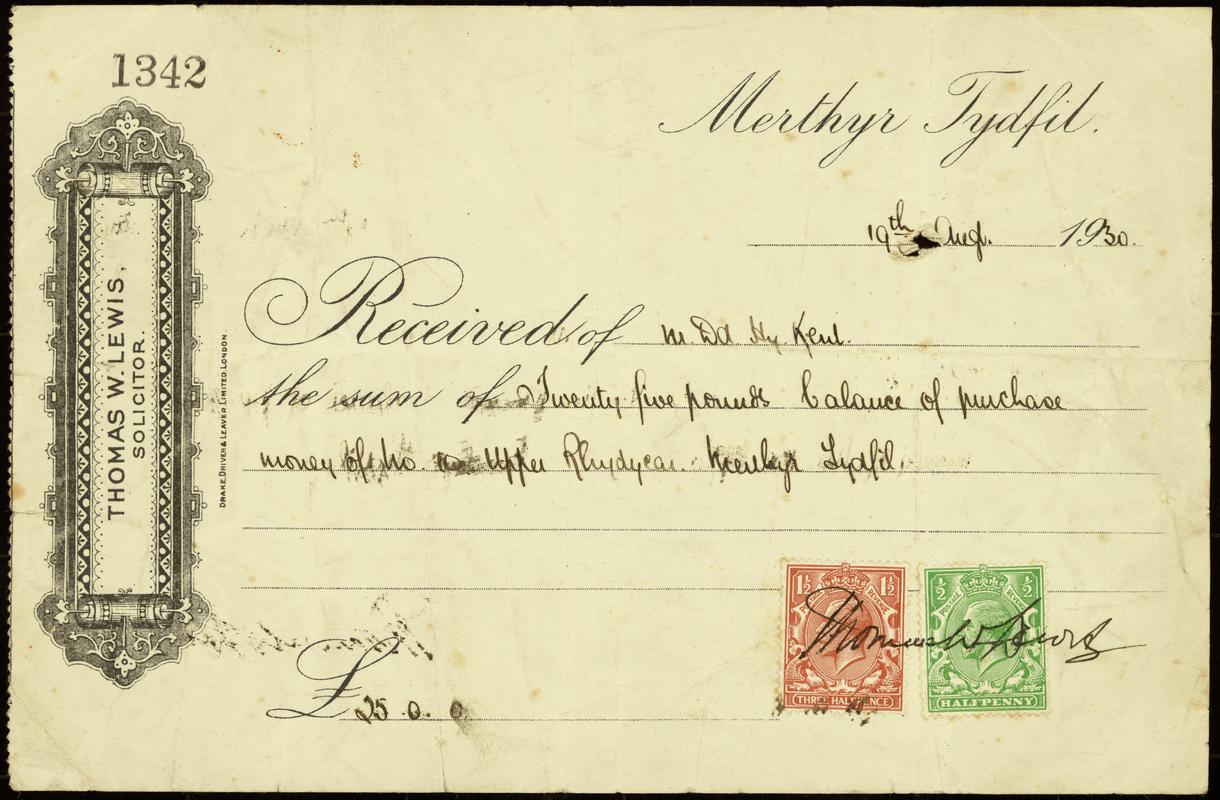 1342
Merthyr Tydfil.
19th Augt. 1930.
Received of Mr Dd Hy. Kent.
the sum of Twenty five pounds balance of purchase
money of No. Upper Rhydycar. Merthyr Tydfil.
£ 25 . 0 . 0
THOMAS W. LEWIS,
SOLICITOR.
DRAKE, DRIVER & LEAVER LIMITED LONDON.
1½ 1½
POSTAGE REVENUE
THREE HALFPENCE
½ ½
POSTAGE REVENUE
HALFPENNY
Thomas W Lewis